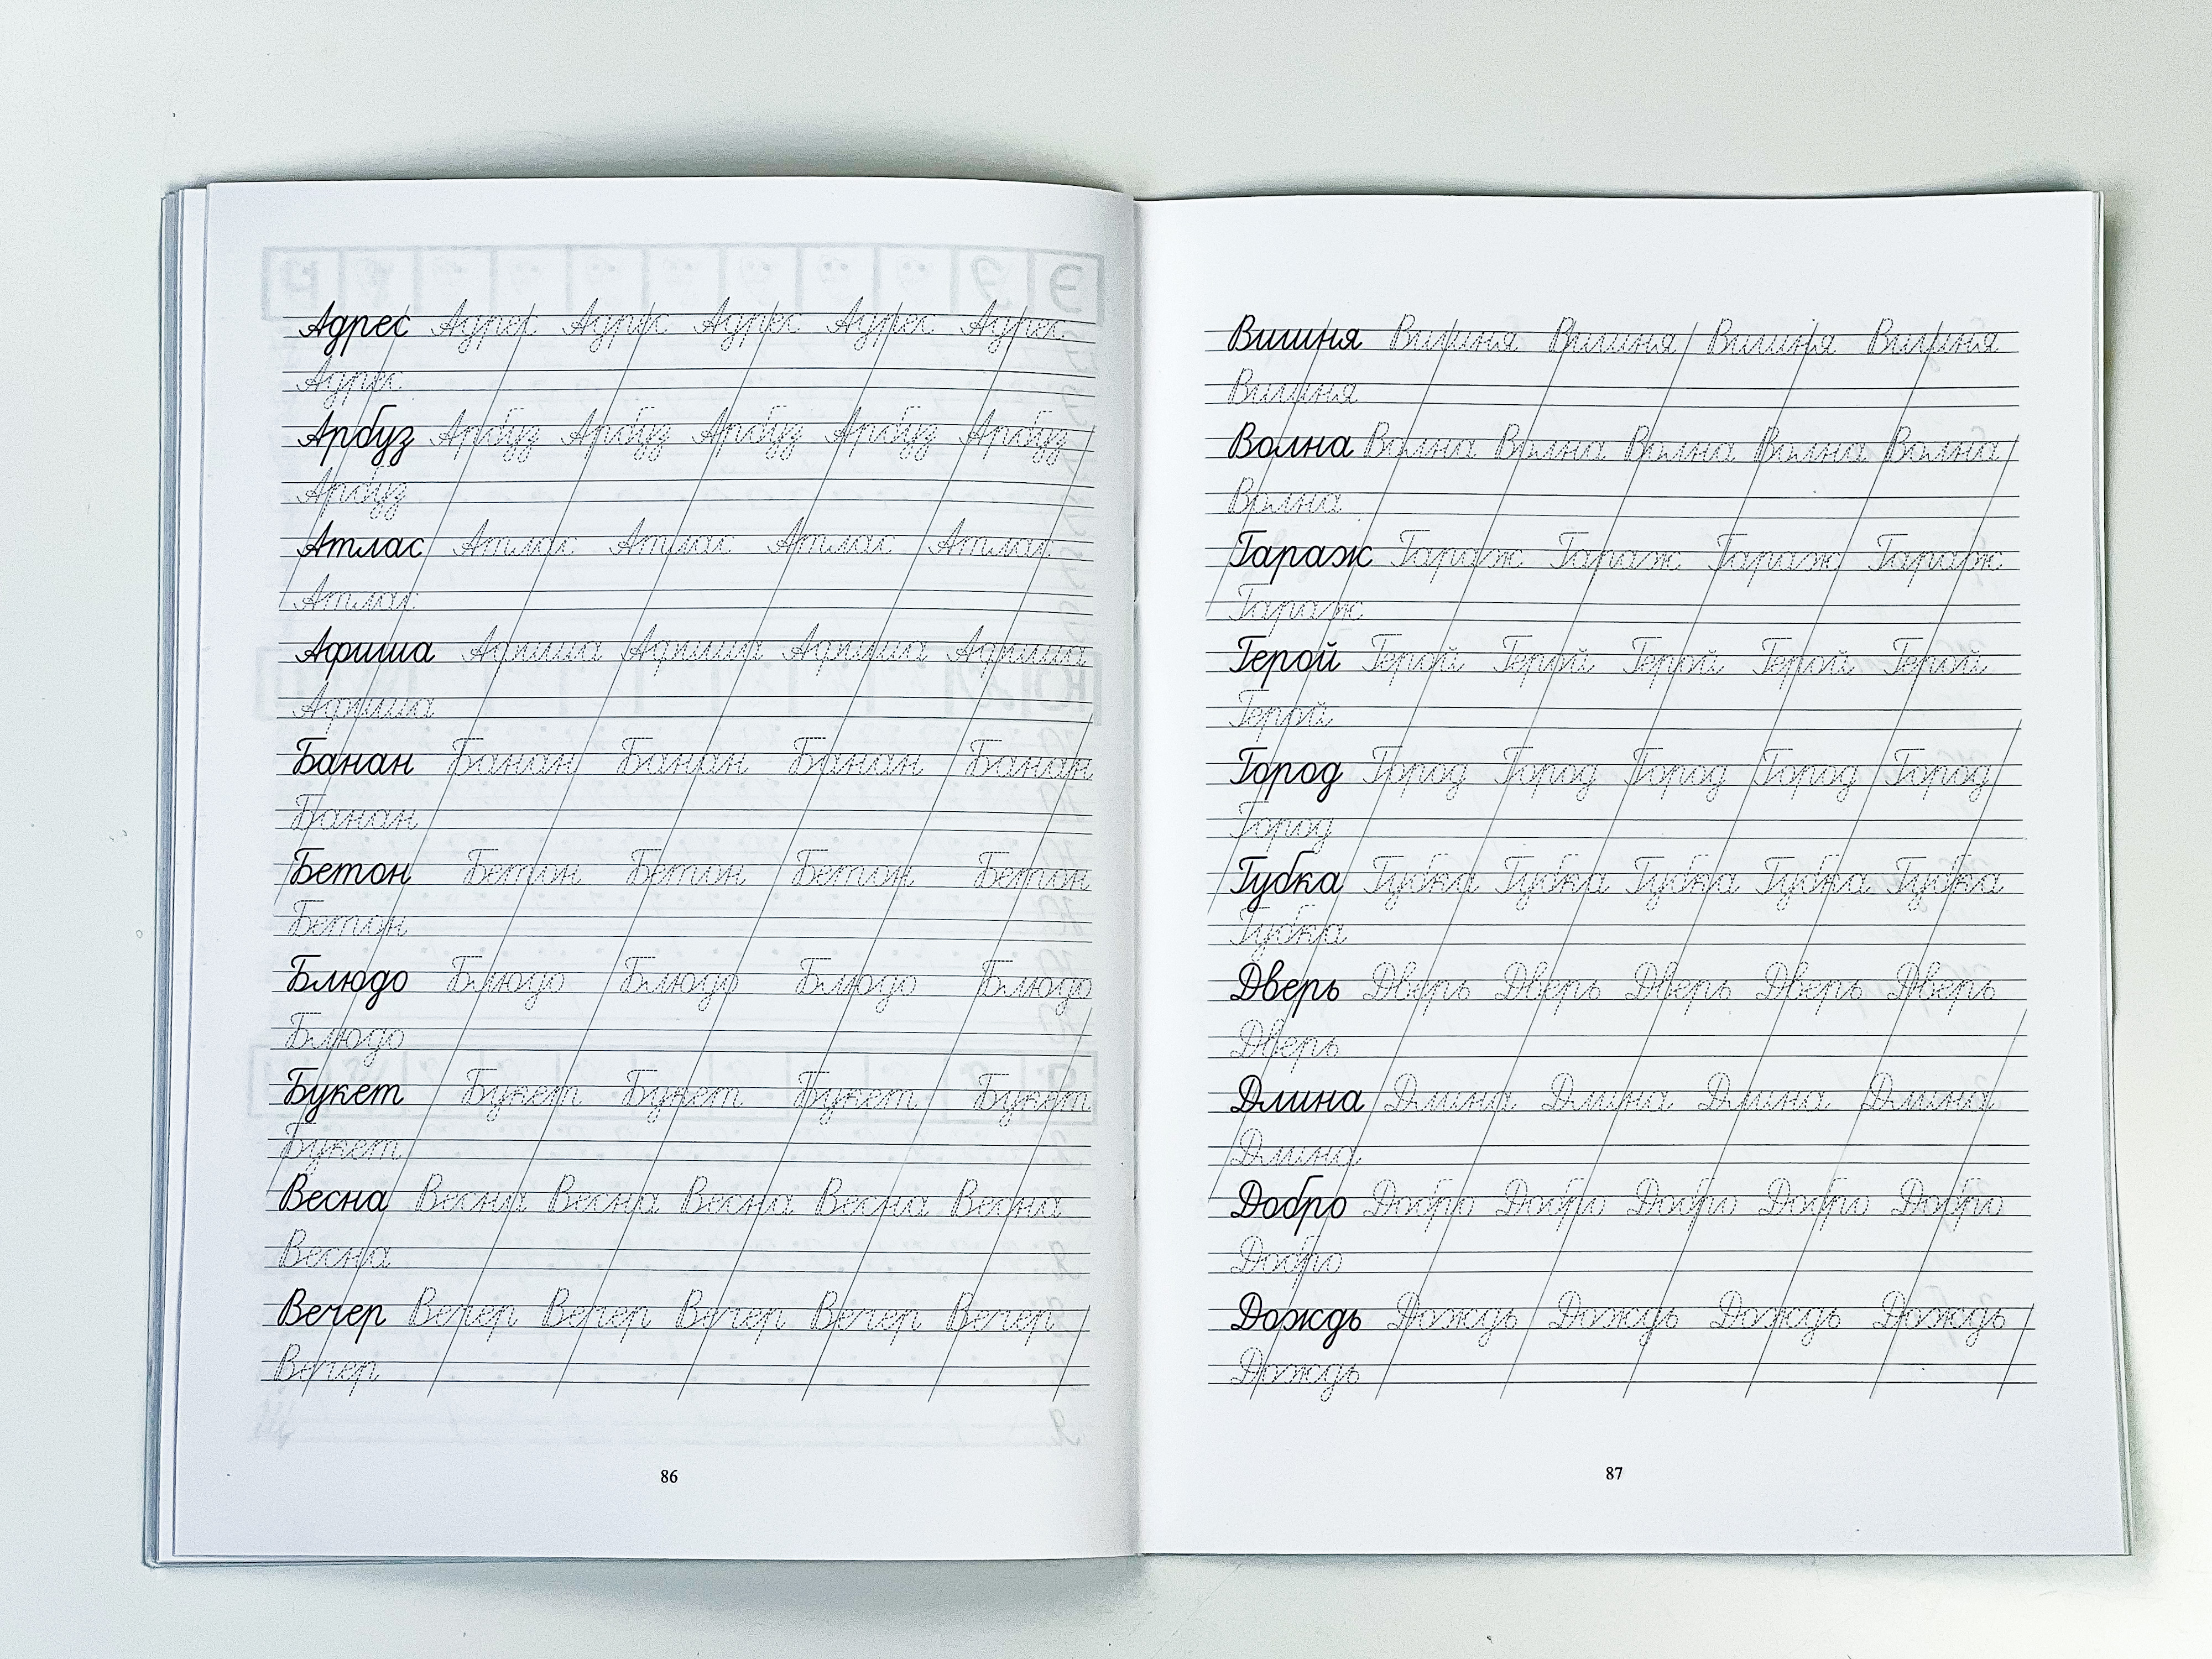 Адрес Адрес Адрес Адрес Адрес Адрес
Адрес
Арбуз Арбуз Арбуз Арбуз Арбуз Арбуз
Арбуз
Атлас Атлас Атлас Атлас Атлас
Атлас
Афиша Афиша Афиша Афиша Афиша
Афиша
Банан Банан Банан Банан Банан
Банан
Бетон Бетон Бетон Бетон Бетон
Бетон
Блюдо Блюдо Блюдо Блюдо Блюдо
Блюдо
Букет Букет Букет Букет Букет
Букет
Весна Весна Весна Весна Весна Весна
Весна
Вечер Вечер Вечер Вечер Вечер Вечер
Вечер
86
Вишня Вишня Вишня Вишня Вишня
Вишня
Волна Волна Волна Волна Волна Волна
Волна
Гараж Гараж Гараж Гараж Гараж
Гараж
Герой Герой Герой Герой Герой Герой
Герой
Город Город Город Город Город Город
Город
Губка Губка Губка Губка Губка Губка
Губка
Дверь Дверь Дверь Дверь Дверь Дверь
Дверь
Длина Длина Длина Длина Длина
Длина
Добро Добро Добро Добро Добро Добро
Добро
Дождь Дождь Дождь Дождь Дождь
Дождь
87